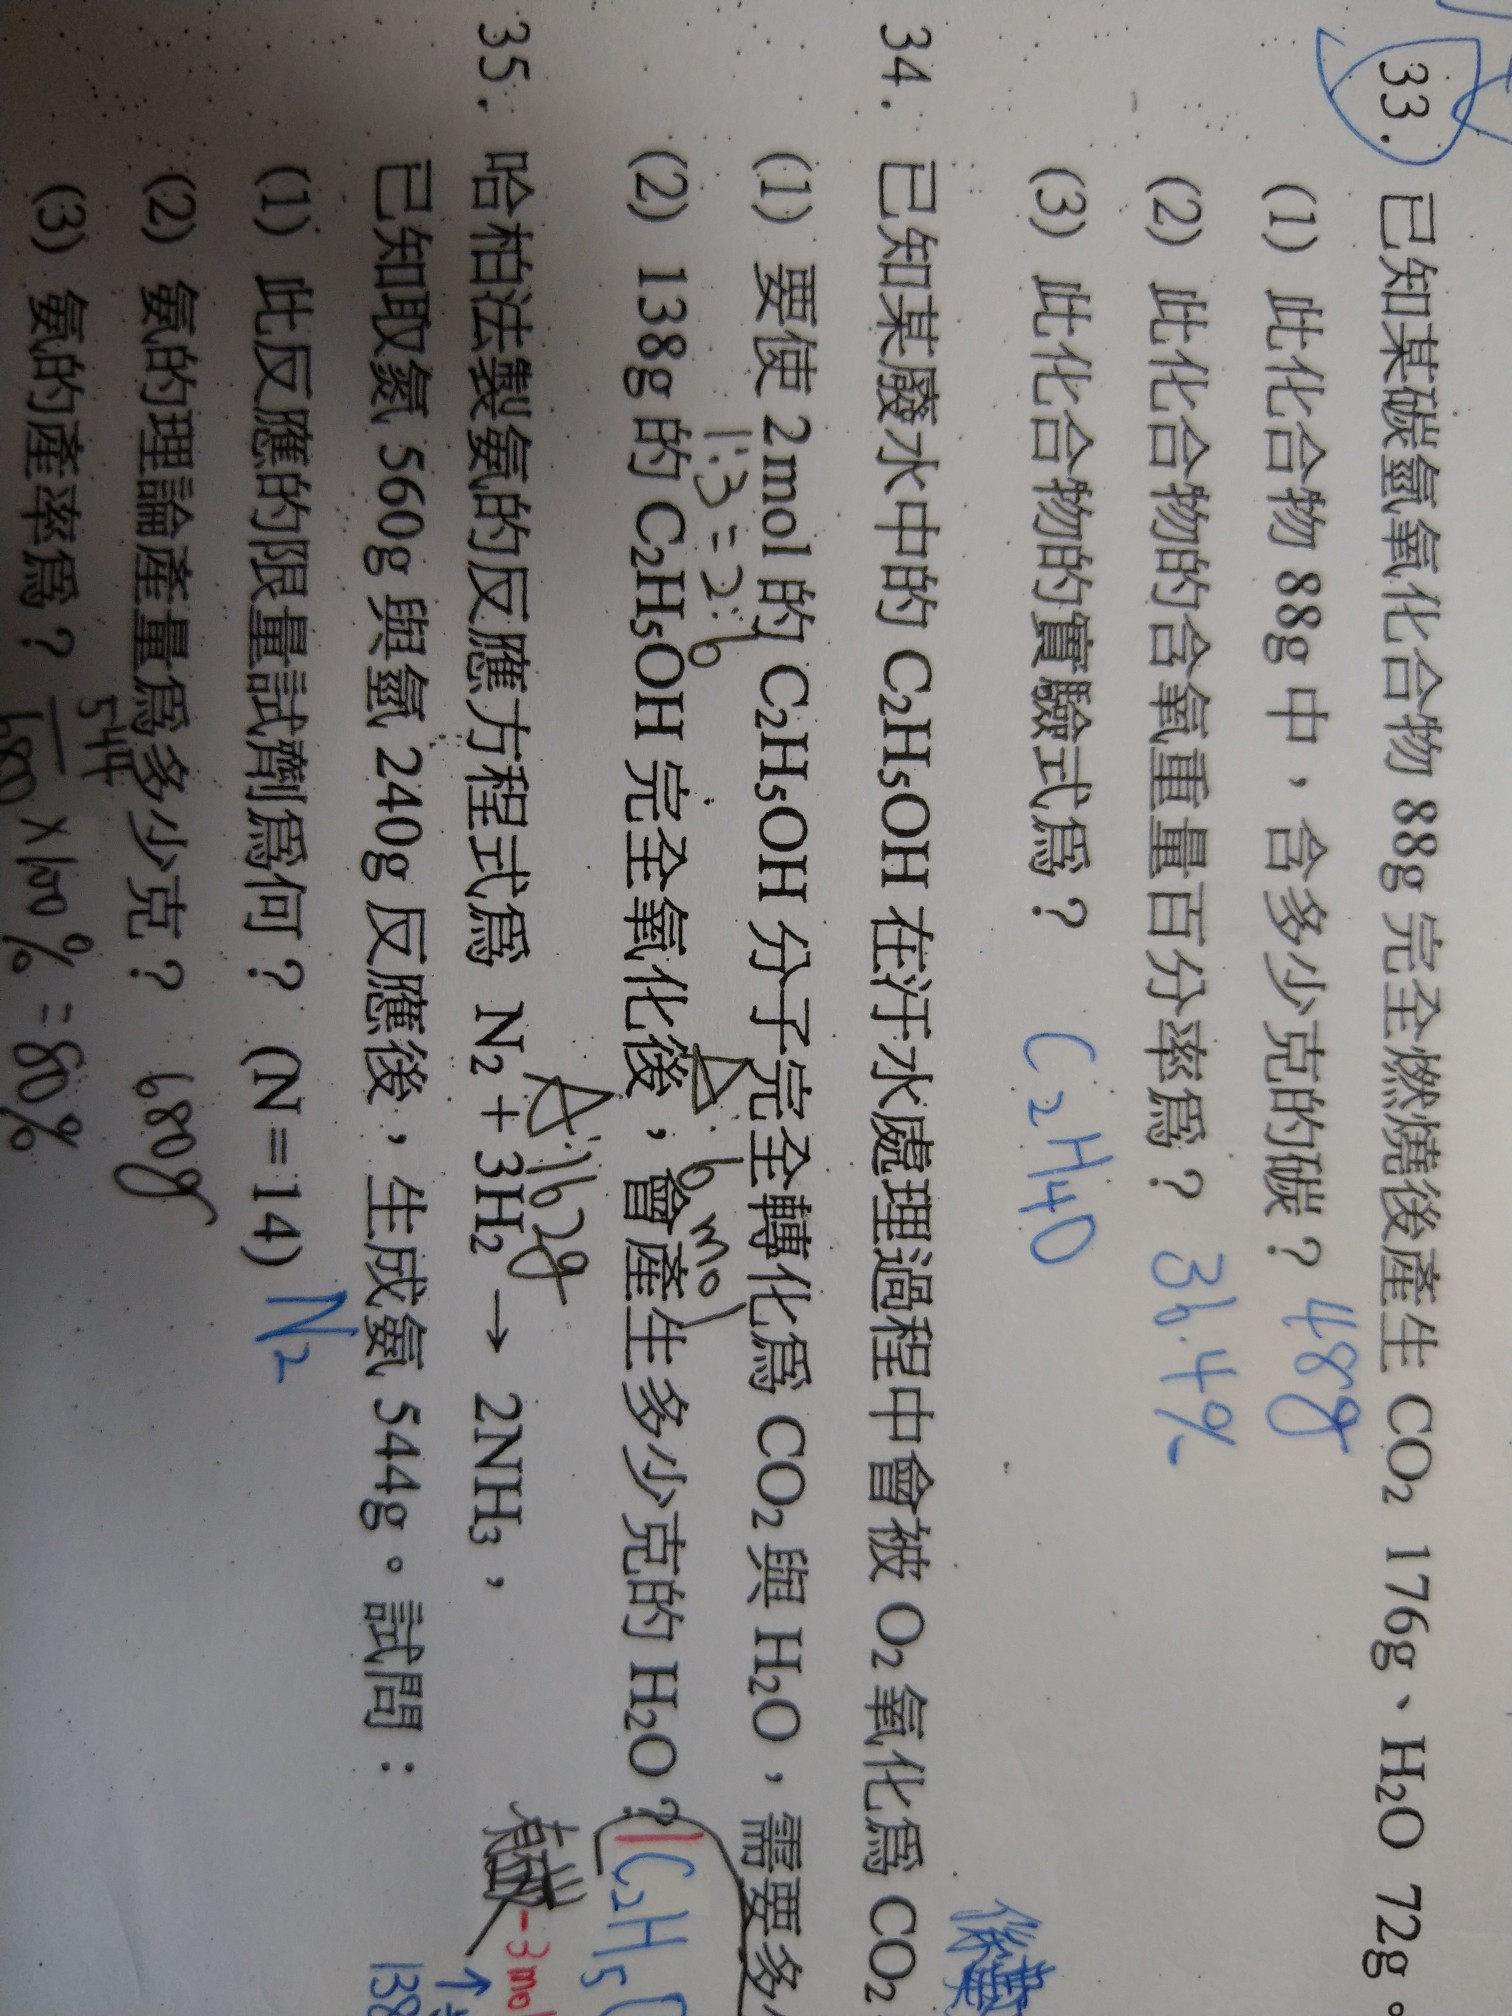 33. 已知某碳氫氧化合物 88g 完全燃燒後產生 CO₂ 176g、H₂O 72g。
(1) 此化合物 88g 中，含多少克的碳？ 48g
(2) 此化合物的含氧重量百分率爲？ 36.4%
(3) 此化合物的實驗式爲？ C₂H₄O
係數
34. 已知某廢水中的 C₂H₅OH 在汙水處理過程中會被 O₂ 氧化爲 CO₂
(1) 要使 2mol 的 C₂H₅OH 分子完全轉化爲 CO₂ 與 H₂O，需要多
1:3=2:6 A:6mol
(2) 138g 的 C₂H₅OH 完全氧化後，會產生多少克的 H₂O？ 1C₂H₅O
A:162g
-3mol
138
35. 哈柏法製氨的反應方程式爲 N₂ + 3H₂ → 2NH₃，
已知取氮 560g 與氫 240g 反應後，生成氨 544g。試問：
(1) 此反應的限量試劑爲何？ (N＝14) N₂
(2) 氨的理論產量爲多少克？ 680g
(3) 氨的產率爲？ 544/680 ×100% = 80%